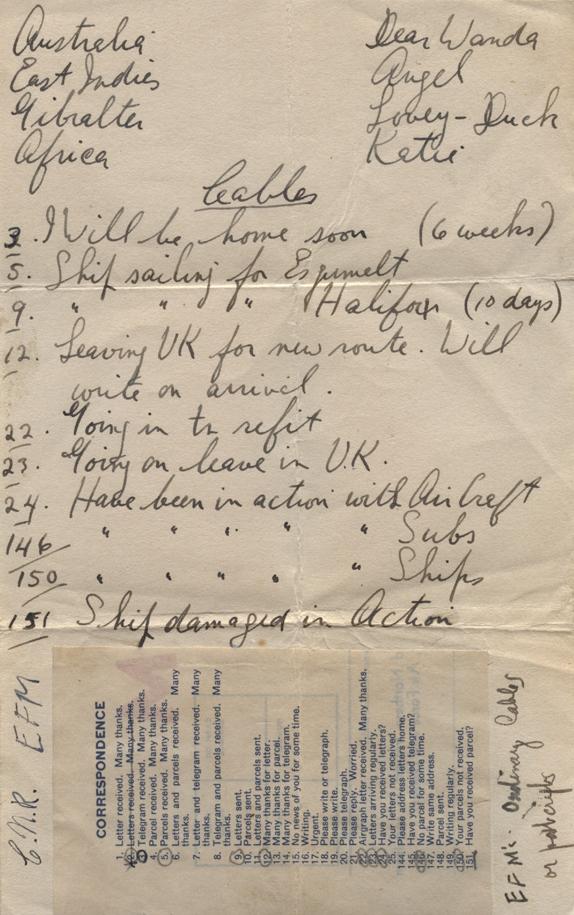 Australia Dear Wanda
East Indies Angel
Gibralter Lovey-Duck
Africa Katie
Cables
3. I Will be home soon (6 weeks)
5. Ship sailing for Esquimelt
9. " " " Halifax (10 days)
12. Leaving UK for new route. Will
write on arrival.
22. Going in to refit
23. Going on leave in U.K.
24. Have been in action with AirCraft
146 " " " " " Subs
150 " " " " " Ships
151 Ship damaged in Action
C.N.R. EFM
CORRESPONDENCE
1. Letter received. Many thanks.
2. Letters received. Many thanks.
3. Telegram received. Many thanks.
4. Parcel received. Many thanks.
5. Parcels received. Many thanks.
6. Letters and parcels received. Many
thanks.
7. and telegram received. Many
thanks.
8. Telegram and parcels received. Many
thanks.
9. Letters sent.
10. Parcels sent.
11. Letters and parcels sent.
12. Many thanks for letter.
13. Many thanks for parcel.
14. Many thanks for telegram.
15. No news of you for some time.
16. Writing.
17. Urgent.
18. Please write or telegraph.
19. Please write.
20. Please telegraph.
21. Please reply. Worried.
22. Airgraph letter received. Many thanks.
23. Letters arriving regularly.
24. Have you received letters?
25. Your letters not received.
144. Please address letters home.
145. Have you received telegram?
146. No parcel for some time.
147. Write same address.
148. Parcel sent.
149. Writing regularly.
150. Your parcels not received.
151. Have you received parcel?
EFM's. Ordinary Cables
or